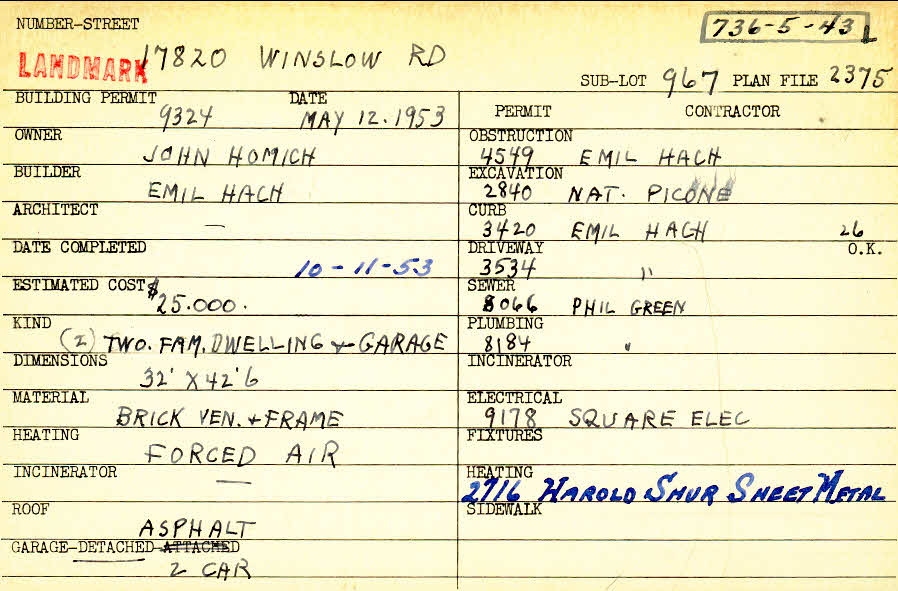 NUMBER-STREET
736-5-43
L
LANDMARK 17820 WINSLOW RD
SUB-LOT 967 PLAN FILE 2375
BUILDING PERMIT DATE
9324 MAY 12.1953
OWNER
JOHN HOMICH
BUILDER
EMIL HACH
ARCHITECT
—
DATE COMPLETED
10-11-53
ESTIMATED COST $
25.000.
KIND
(2) TWO. FAM. DWELLING + GARAGE
DIMENSIONS
32' X 42'6
MATERIAL
BRICK VEN. + FRAME
HEATING
FORCED AIR
INCINERATOR
—
ROOF
ASPHALT
GARAGE-DETACHED-ATTACHED
2 CAR
PERMIT CONTRACTOR
OBSTRUCTION
4549 EMIL HACH
EXCAVATION
2840 NAT. PICONE
CURB
3420 EMIL HACH 26
DRIVEWAY O.K.
3534 "
SEWER
8066 PHIL GREEN
PLUMBING
8184 "
INCINERATOR
ELECTRICAL
9178 SQUARE ELEC
FIXTURES
HEATING
2716 HAROLD SHUR SHEET METAL
SIDEWALK